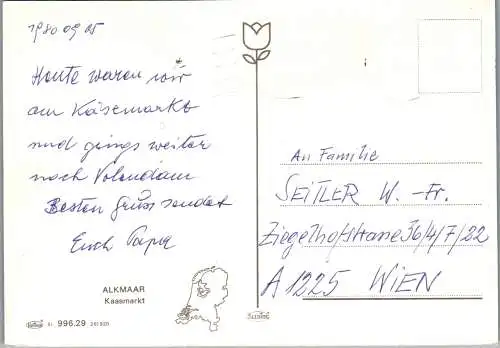 1980 09 05
Heute waren wir
am Käsemarkt
und gings weiter
nach Volendam
Besten Gruss sendet
Euch Papa
ALKMAAR
Kaasmarkt
996.29
An Familie
SEITLER W. -Fr.
Ziegelhofstrasse 36/4/7/22
A 1225 WIEN